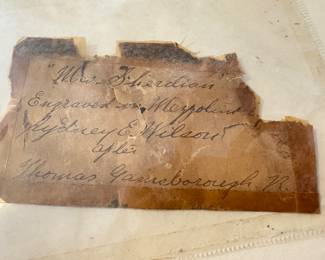 "Mrs Sherdian"
Engraved in Mezzotint
Sydney E. Wilson
after
Thomas Gainsborough R